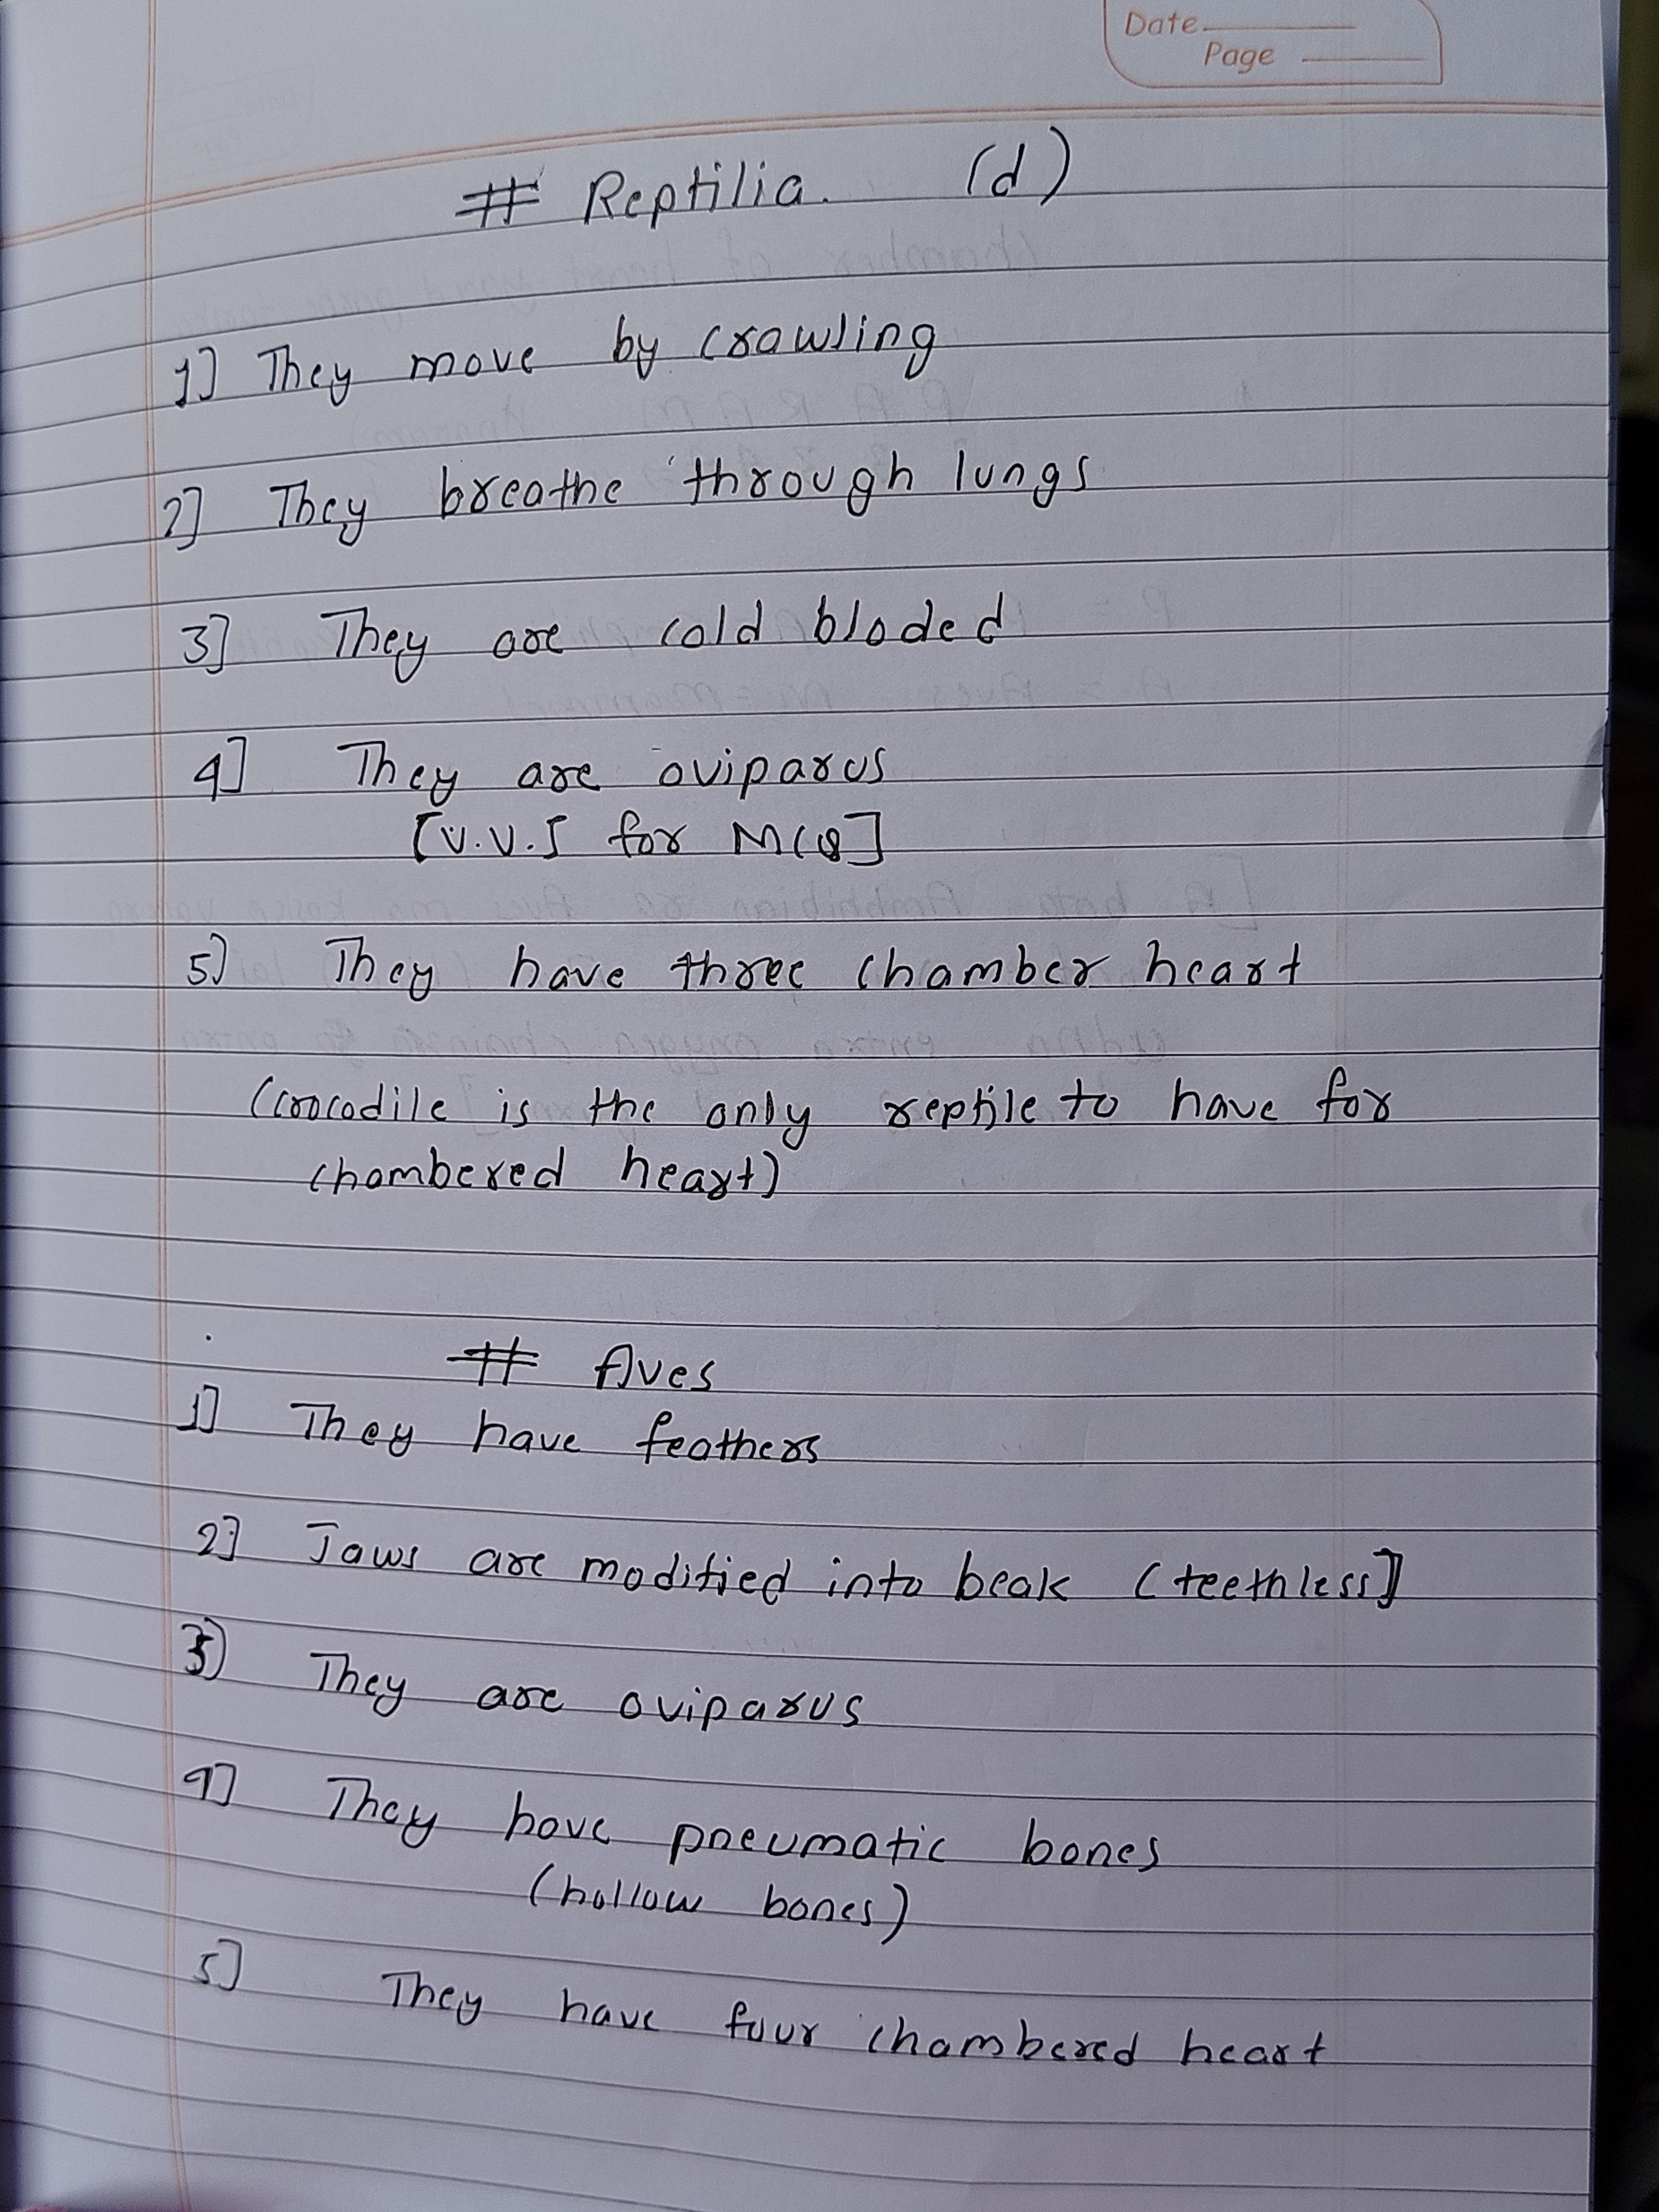 Date
Page
# Reptilia. (d)
1] They move by crawling
2] They breathe through lungs
3] They are cold bloded
4] They are oviparus
[V.V.I for MCQ]
5) They have three chamber heart
(crocodile is the only reptile to have for
chambered heart)
# Aves
1] They have feathers
2] Jaws are modified into beak (teethless]
3) They are oviparus
4] They have pneumatic bones
(hollow bones)
5] They have four chambered heart